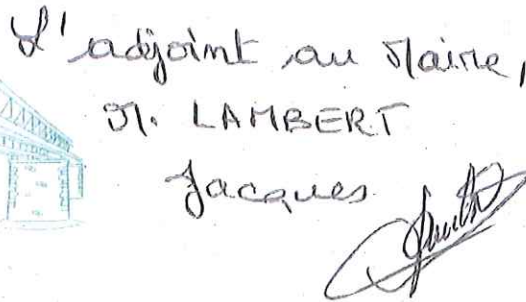 L'adjoint au Maire,
M. LAMBERT
Jacques